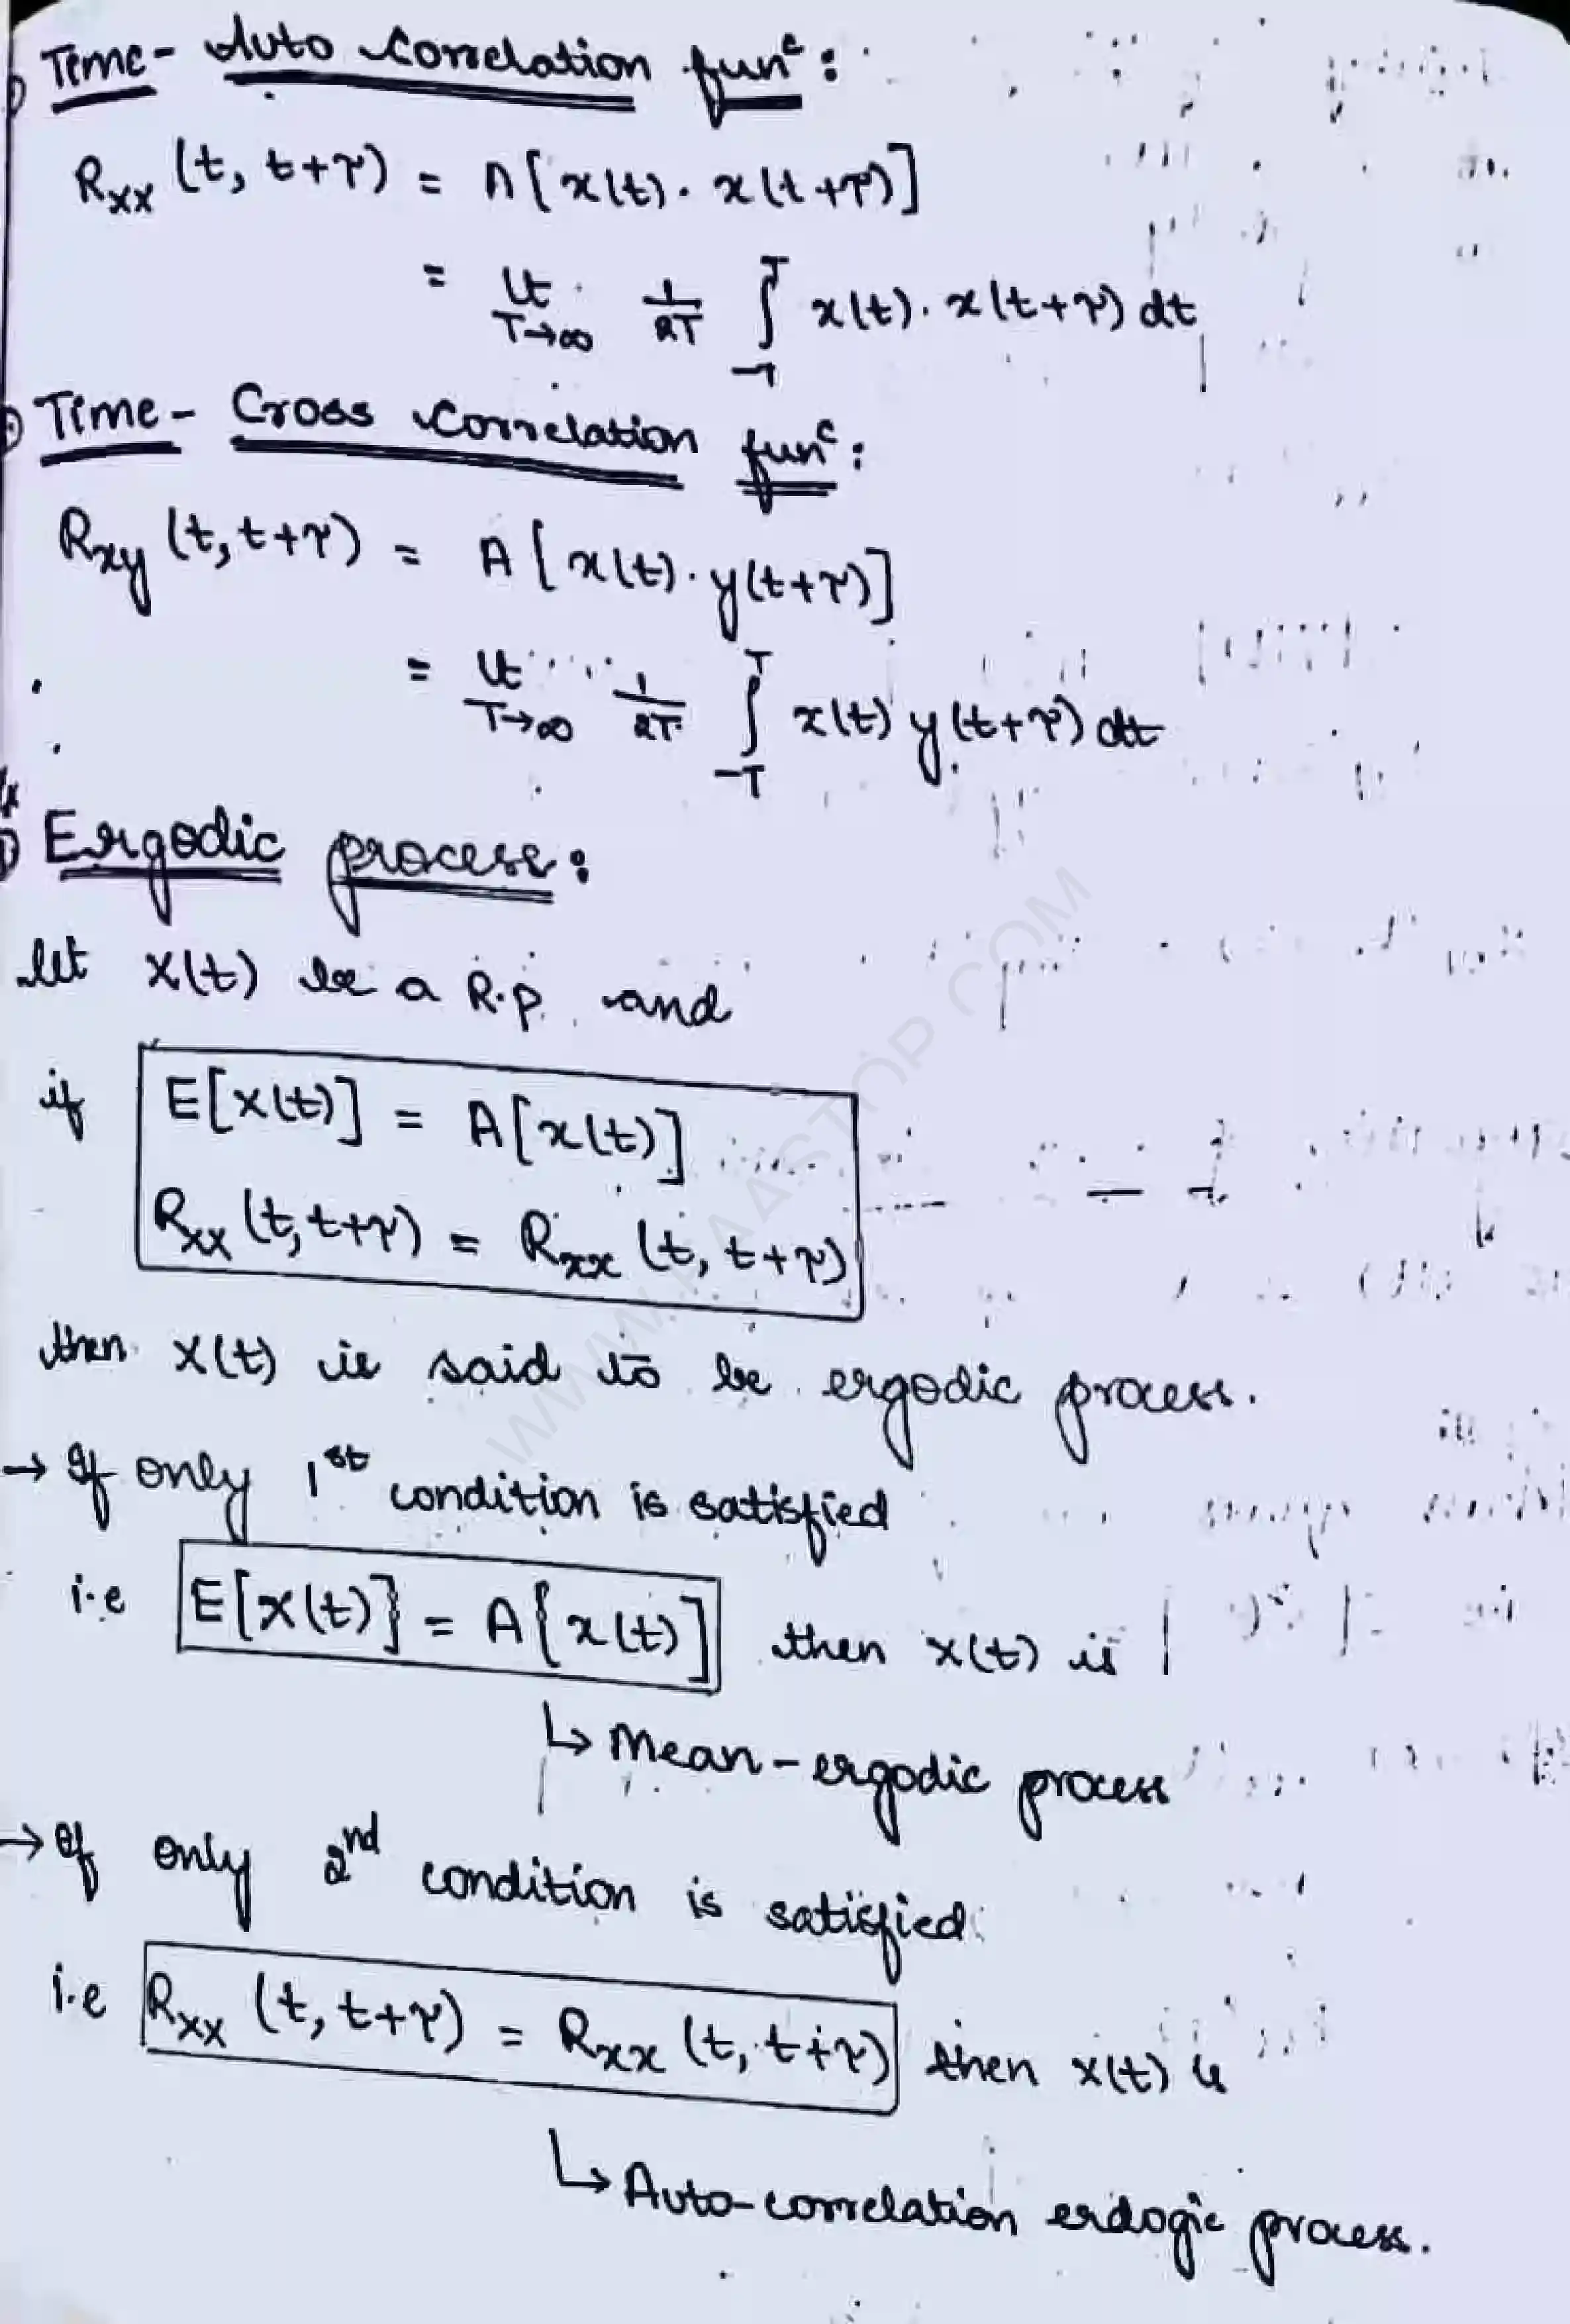 Time - Auto Correlation funᶜ :
Rxx (t, t+τ) = A[x(t) . x(t+τ)]
= Lt T→∞ 1/2T ∫ -T T x(t) . x(t+τ) dt
Time - Cross correlation funᶜ :
Rxy (t, t+τ) = A[x(t) . y(t+τ)]
= Lt T→∞ 1/2T ∫ -T T x(t) y(t+τ) dt
Ergodic process :
Let X(t) be a R.P. and
if E[X(t)] = A[x(t)]
RXX (t, t+τ) = Rxx (t, t+τ)
then X(t) is said to be ergodic process.
→ If only 1st condition is satisfied
i.e E[X(t)] = A[x(t)] then X(t) is
↳ Mean-ergodic process
→ If only 2nd condition is satisfied
i.e RXX (t, t+τ) = Rxx (t, t+τ) then X(t) is
↳ Auto-correlation erdogic process.